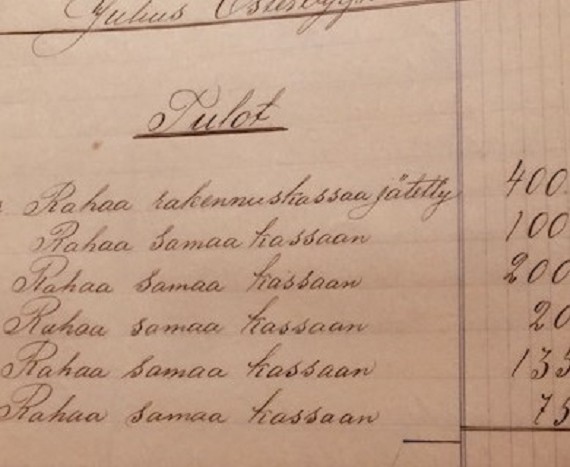 Julius
Tulot
Rahaa rakennuskassaa jätetty 400
Rahaa samaa kassaan 100
Rahaa samaa kassaan 200
Rahaa samaa kassaan 20
Rahaa samaa kassaan 135
Rahaa samaa kassaan 75